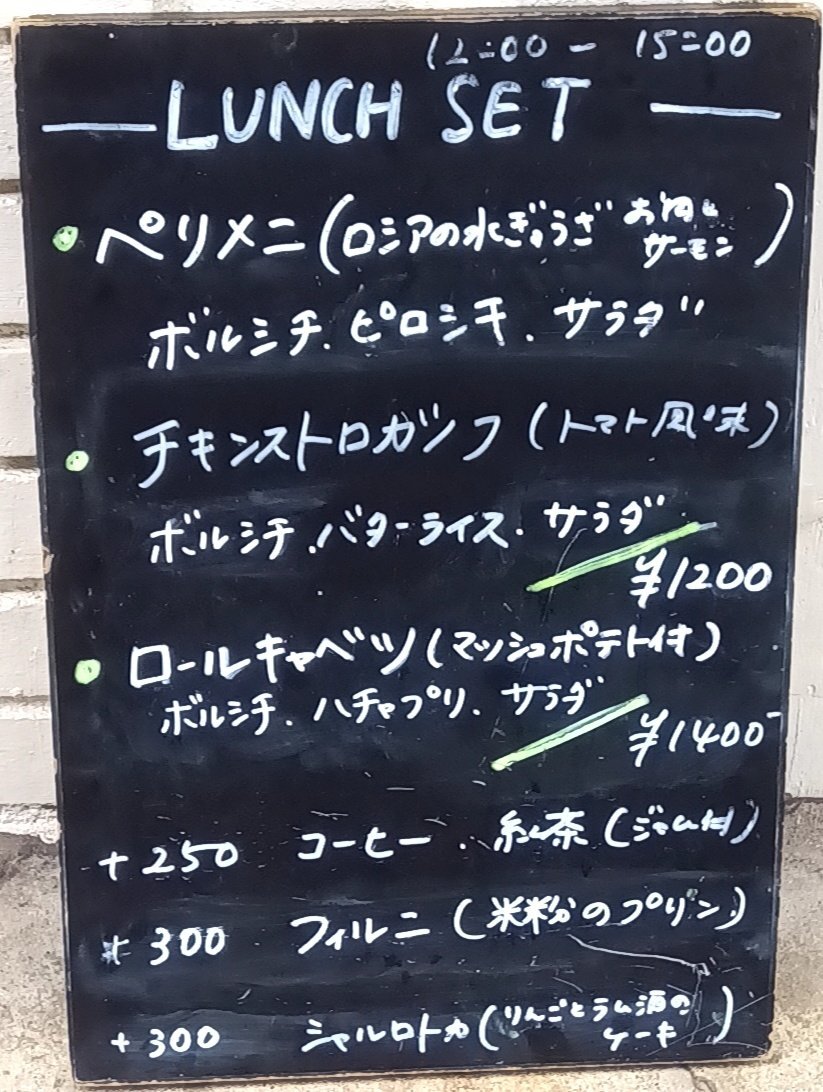 12:00 - 15:00
LUNCH SET
ペリメニ(ロシアの水ぎょうざ お肉とサーモン)
ボルシチ.ピロシキ.サラダ
チキンストロガノフ(トマト風味)
ボルシチ.バターライス.サラダ
¥1200
ロールキャベツ(マッシュポテト付)
ボルシチ.ハチャプリ.サラダ
¥1400-
+250 コーヒー.紅茶(ジャム付)
+300 フィルニ(米粉のプリン)
+300 シャルロトカ(りんごとラム酒のケーキ)